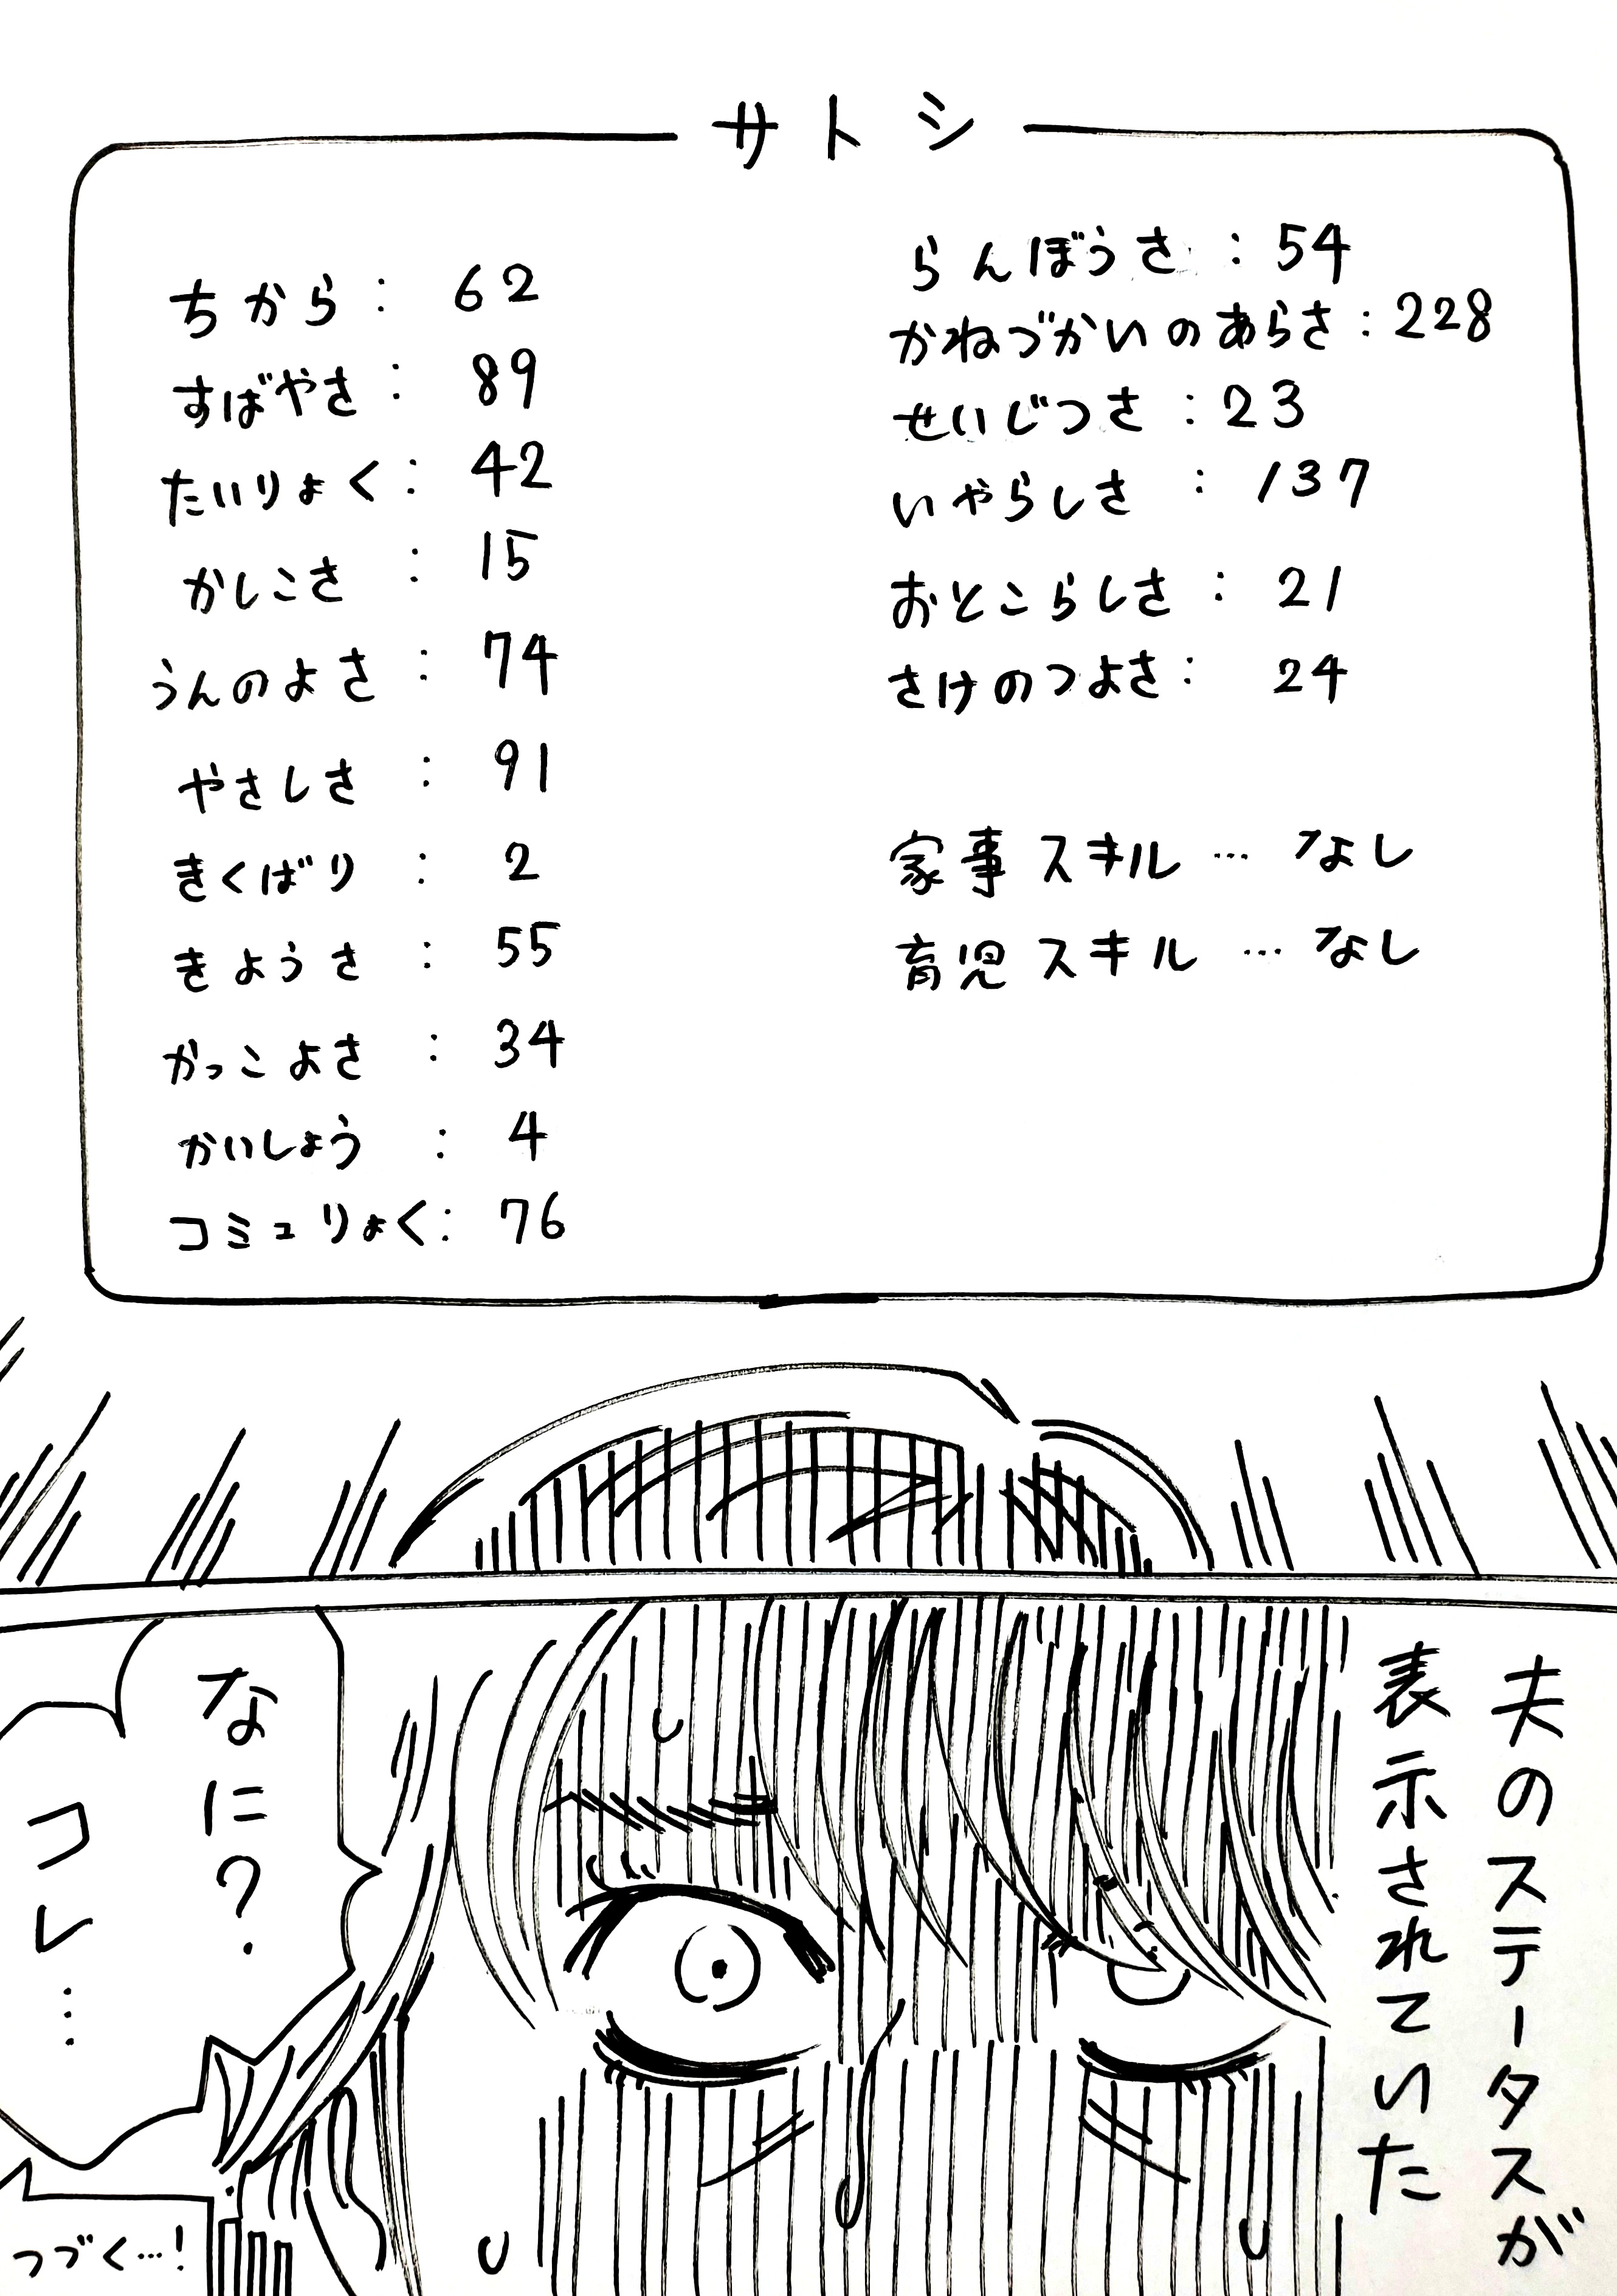 サトシ
ちから： 62
すばやさ： 89
たいりょく： 42
かしこさ ： 15
うんのよさ： 74
やさしさ ： 91
きくばり ： 2
きようさ ： 55
かっこよさ ： 34
かいしょう ： 4
コミュりょく： 76
らんぼうさ ： 54
かねづかいのあらさ：228
せいじつさ ：23
いやらしさ ： 137
おとこらしさ： 21
さけのつよさ： 24
家事スキル … なし
育児スキル … なし
夫のステータスが
表示されていた
なに？
コレ…
つづく…！